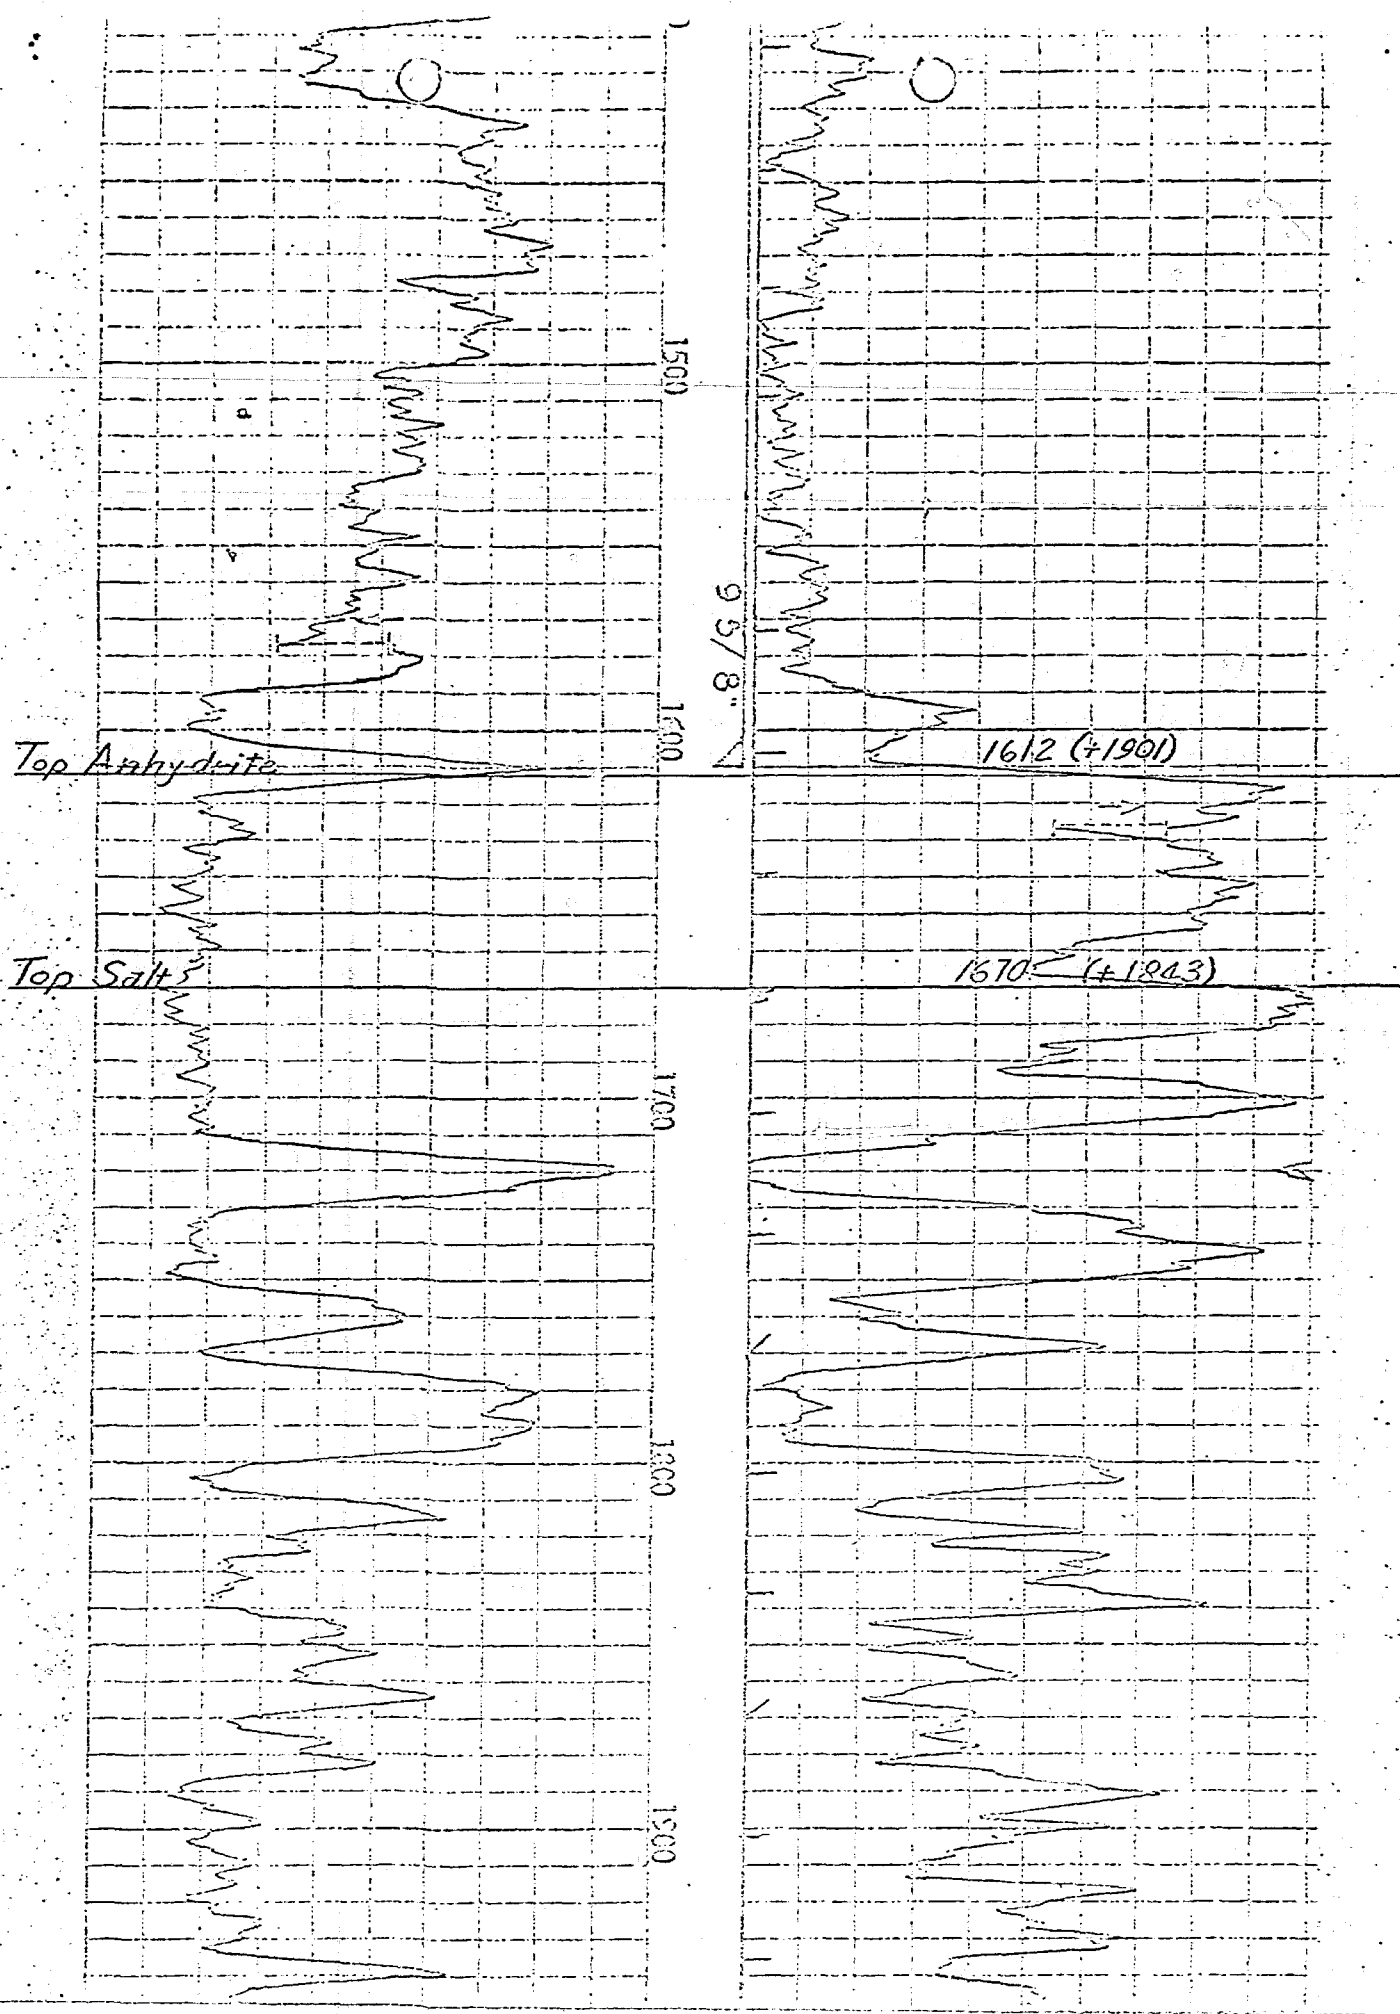 1500
9 5/8"
1600
Top Anhydrite 1612 (+1901)
Top Salt 1670 (+1843)
1700
1800
1900